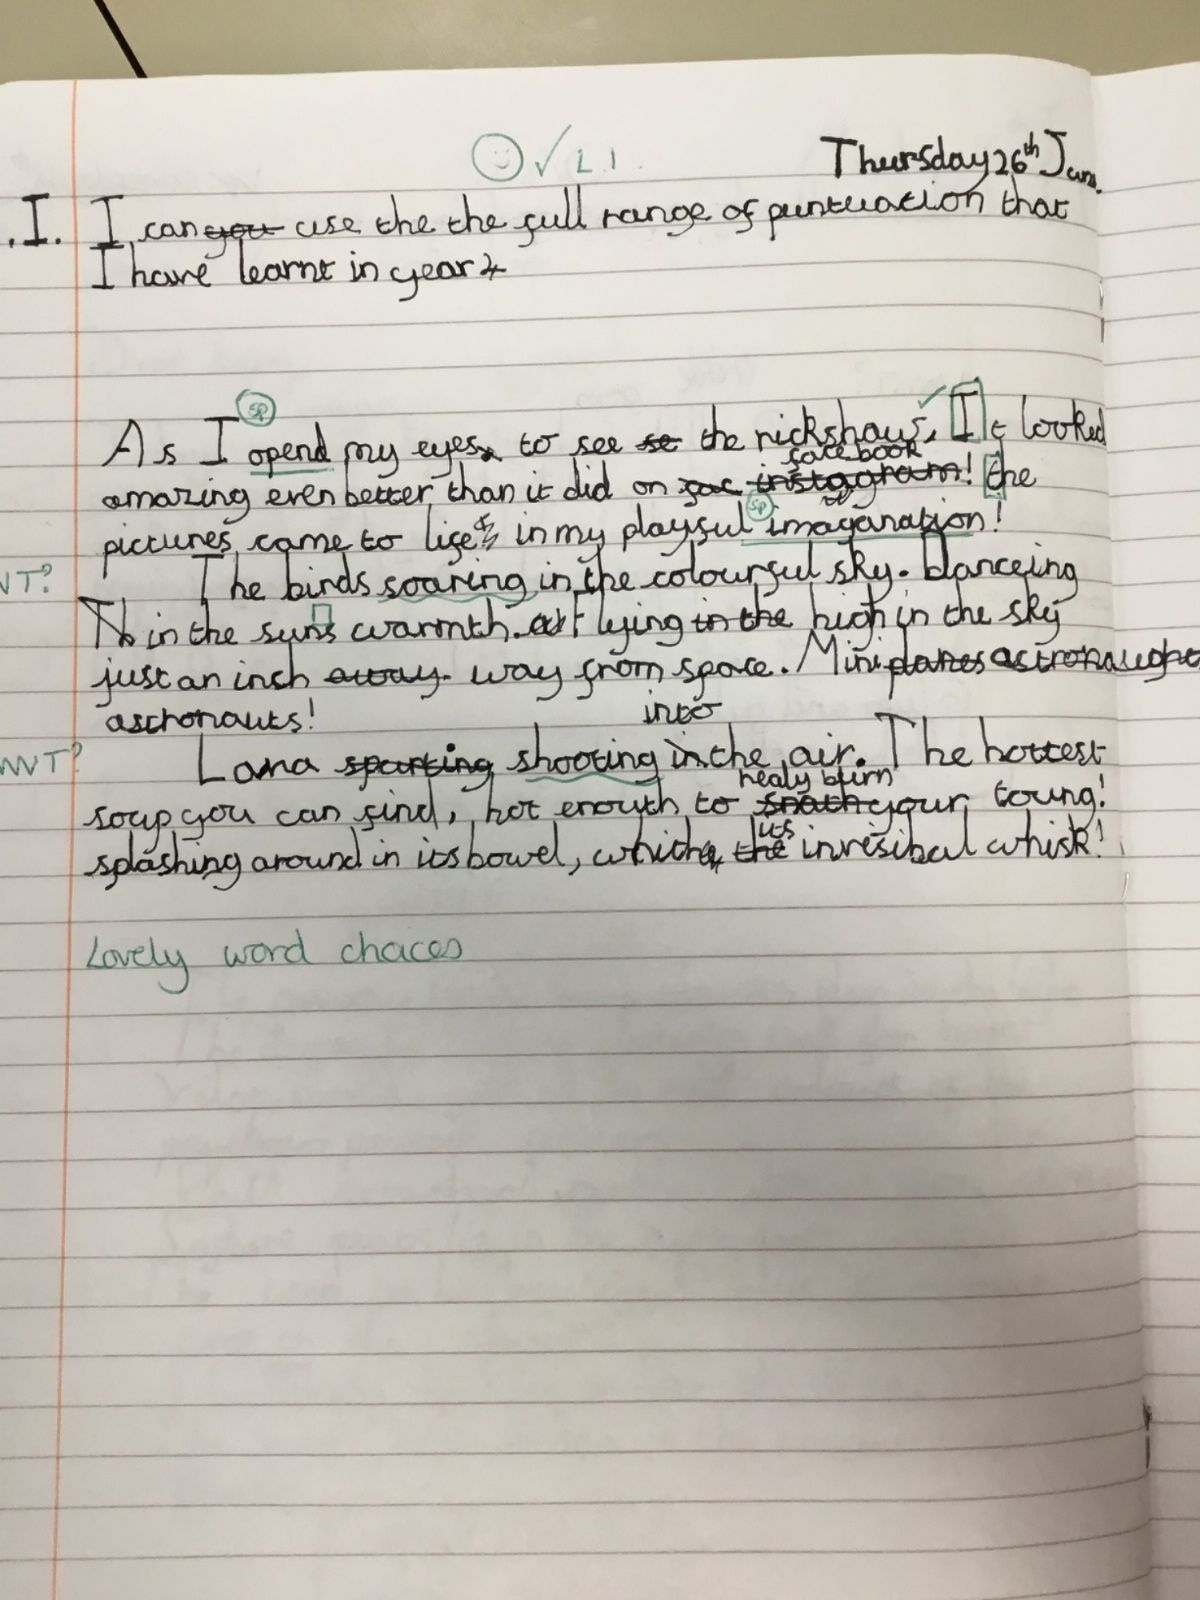 ✓ L.I.
Thursday 26th Jan.
.I. I can you use the the full range of puntuation that
I have learnt in year 4
sp
As I opend my eyes to see se the rickshaws, It looked
face book
amazing even better than it did on fac instagram! the
sp
pictures came to life in my playful imaganation!
VT? The birds soaring in the colourful sky. danceing
in the suns warmth. lying in the high in the sky
just an inch away. way from space. Mini planes astronaught
astronauts!
into
WVT? Lava sparting shooting in the air. The hottest
healy burn
soup you can find, hot enough to your toung!
its
splashing around in its bowel, which the invesibal whisk!
Lovely word choices